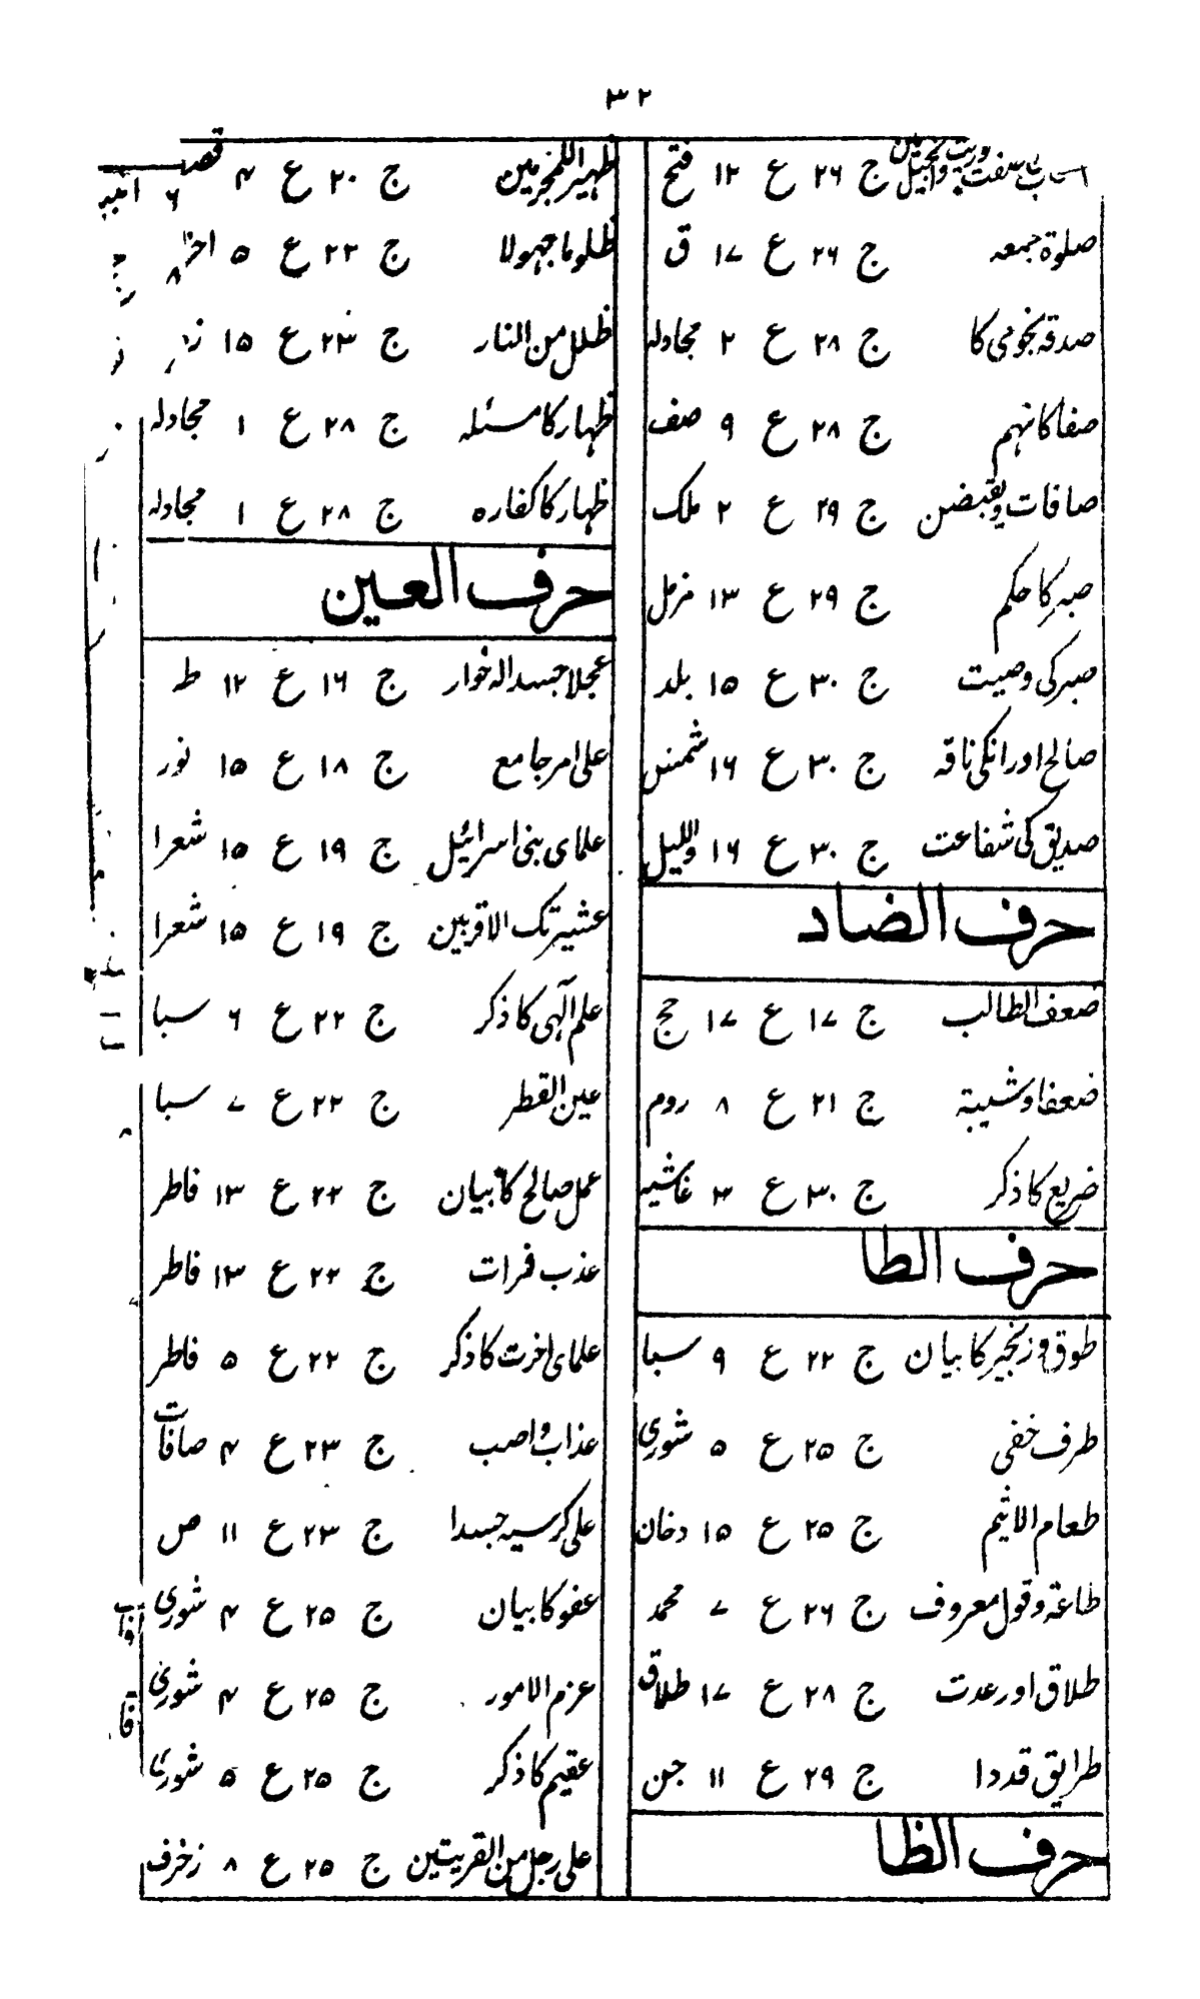 ۳۲
صفت توریت وانجیل میں ج ۲۶ ع ۱۲ فتح
صلوة جمعہ ج ۲۶ ع ۱۷ ق
صدقہ نجومی کا ج ۲۸ ع ۲ مجادلہ
صفا کانہم ج ۲۸ ع ۹ صف
صافات ویقبضن ج ۲۹ ع ۲ ملک
صبر کا حکم ج ۲۹ ع ۱۳ مزمل
صبر کی وصیت ج ۳۰ ع ۱۵ بلد
صالح اور انکی ناقہ ج ۳۰ ع ۱۶ شمس
صدیق کی شفاعت ج ۳۰ ع ۱۶ واللیل
حرف الضاد
ضعف الطالب ج ۱۷ ع ۱۷ حج
ضعفا وشیبة ج ۲۱ ع ۸ روم
ضریع کا ذکر ج ۳۰ ع ۳ غاشیہ
حرف الطا
طوق و زنجیر کا بیان ج ۲۲ ع ۹ سبا
طرف خفی ج ۲۵ ع ۵ شوری
طعام الاثیم ج ۲۵ ع ۱۵ دخان
طاعة وقول معروف ج ۲۶ ع ۷ محمد
طلاق اور عدت ج ۲۸ ع ۱۷ طلاق
طرایق قددا ج ۲۹ ع ۱۱ جن
حرف الظا
ظهیرا للمجرمین ج ۲۰ ع ۴ قصص
ظلوما جہولا ج ۲۲ ع ۵
ظلل من النار ج ۲۳ ع ۱۵
ظہار کا مسئلہ ج ۲۸ ع ۱ مجادلہ
ظہار کا کفارہ ج ۲۸ ع ۱ مجادلہ
حرف العین
عجلا جسدا لہ خوار ج ۱۶ ع ۱۲ طہ
علی امر جامع ج ۱۸ ع ۱۵ نور
علمای بنی اسرائیل ج ۱۹ ع ۱۵ شعرا
عشیرتک الاقربین ج ۱۹ ع ۱۵ شعرا
علم آلہی کا ذکر ج ۲۲ ع ۶ سبا
عین القطر ج ۲۲ ع ۷ سبا
عمل صالح کا بیان ج ۲۲ ع ۱۳ فاطر
عذب فرات ج ۲۲ ع ۱۳ فاطر
علمای اخرت کا ذکر ج ۲۲ ع ۵ فاطر
عذاب واصب ج ۲۳ ع ۴ صافات
علی کرسیہ جسدا ج ۲۳ ع ۱۱ ص
عفو کا بیان ج ۲۵ ع ۴ شوری
عزم الامور ج ۲۵ ع ۴ شوری
عقیم کا ذکر ج ۲۵ ع ۵ شوری
علی رجل من القریتین ج ۲۵ ع ۸ زخرف